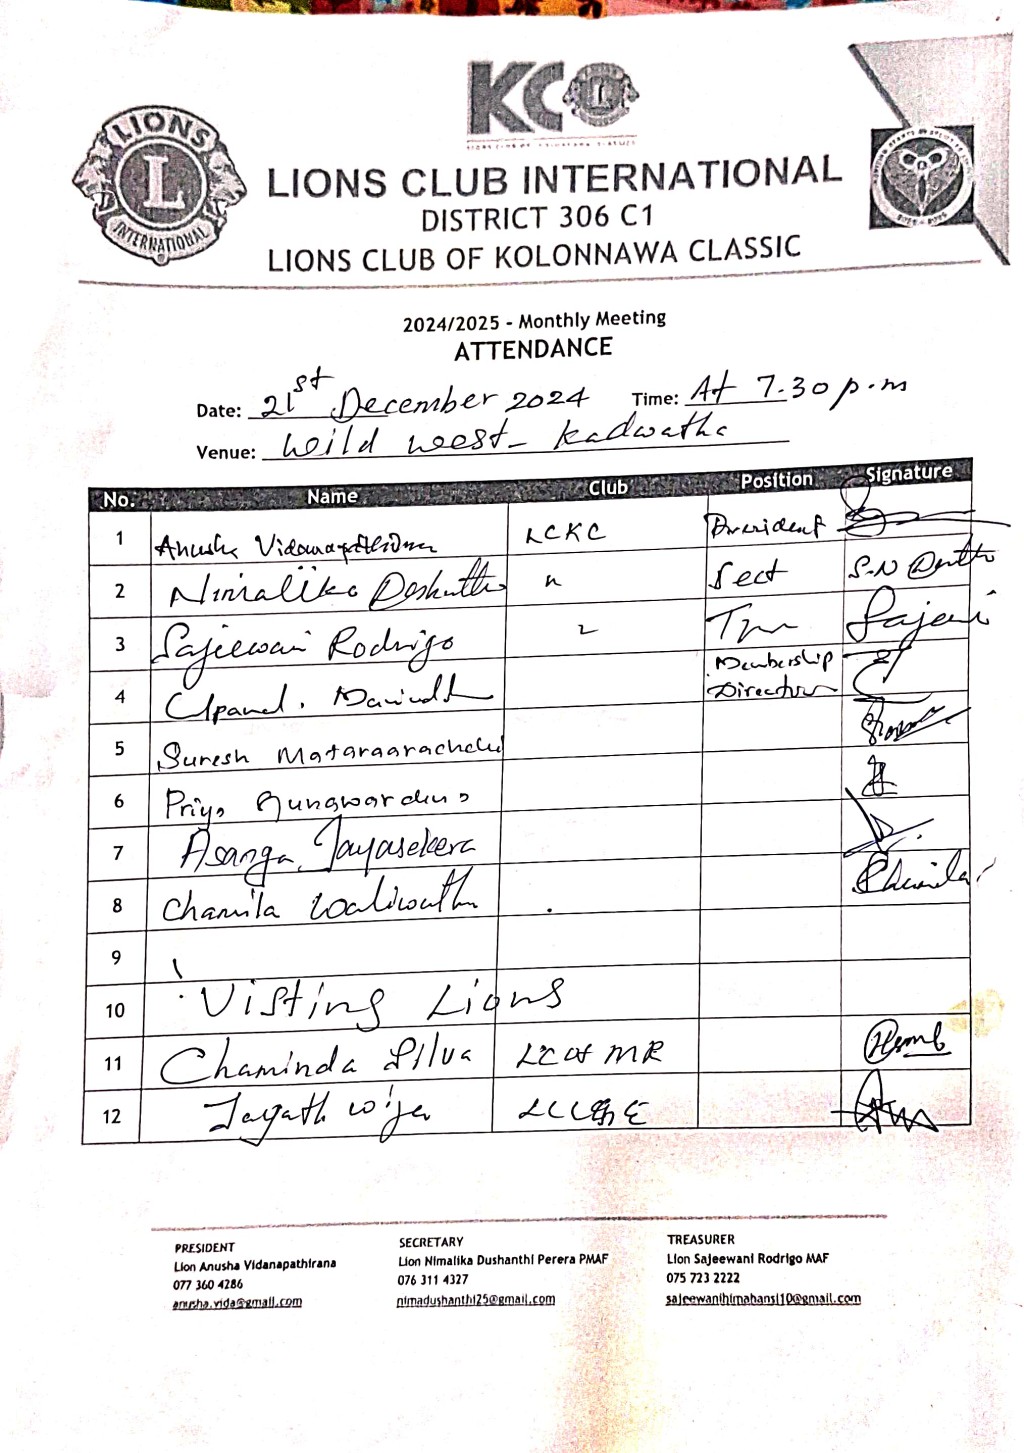 KC
LIONS
L
INTERNATIONAL
LIONS CLUB INTERNATIONAL
DISTRICT 306 C1
LIONS CLUB OF KOLONNAWA CLASSIC
2024/2025 - Monthly Meeting
ATTENDANCE
Date: 21st December 2024 Time: At 7.30 p.m
Venue: Wild West - Kadwatha
No. Name Club Position Signature
1 Anusha Vidanapathirana LCKC President
2 Nimalika Dushanthi " Sect
3 Sajeewani Rodrigo Sajeewani
4 Membership Director
5 Suresh Mataraarachchi
6 Priya Gunawardena
7 Asanga Jayasekera
8 Chamila Chamila
9
10 Visting Lions
11 Chaminda Silva LC of MR
12 Jayath Wijer
PRESIDENT
Lion Anusha Vidanapathirana
077 360 4286
anusha.vida@gmail.com
SECRETARY
Lion Nimalika Dushanthi Perera PMAF
076 311 4327
nimadushanthi25@gmail.com
TREASURER
Lion Sajeewani Rodrigo MAF
075 723 2222
sajeewanihimahansi10@gmail.com